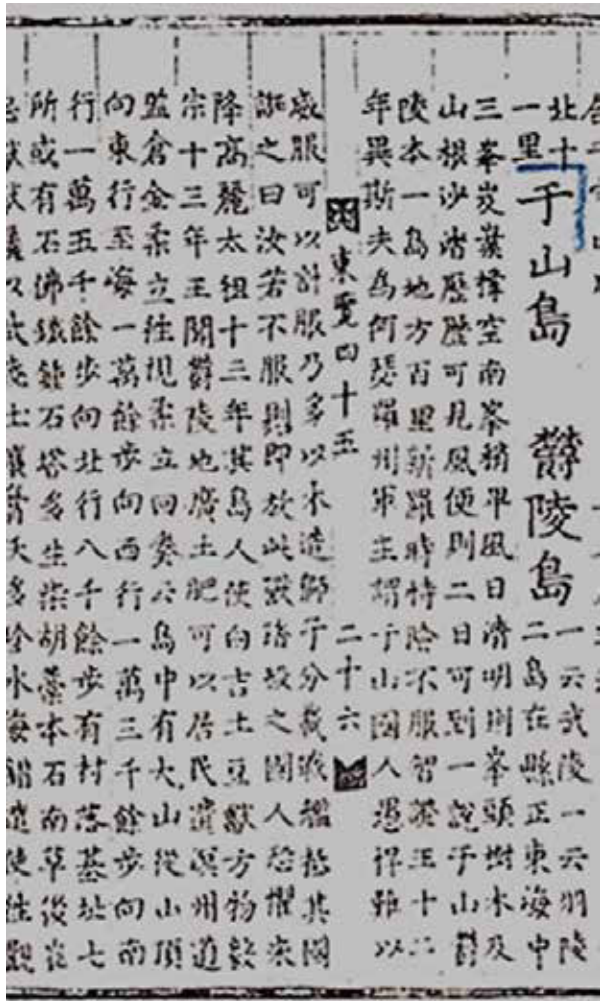 北十
一里
于山島 鬱陵島
一云武陵一云羽陵
二島在縣正東海中
三峯岌嶪撑空南峯稍卑風日清明則峯頭樹木及
山根沙渚歷歷可見風便則二日可到一說于山鬱
陵本一島地方百里新羅時恃險不服智證王十二
年異斯夫為何瑟羅州軍主謂于山國人愚悍難以
東覽四十五 二十六
威服可以計服乃多以木造獅子分載戰艦抵其國
誑之曰汝若不服則即放此獸踏殺之國人恐懼來
降高麗太祖十三年其島人使白吉土豆獻方物毅
宗十三年王聞鬱陵地廣土肥可以居民遣溟州道
監倉金柔立往視柔立回奏云島中有大山從山頂
向東行至海一萬餘步向西行一萬三千餘步向南
行一萬五千餘步向北行八千餘步有村落基址七
所或有石佛鐵鍾石塔多生柴胡藁本石南草後崔